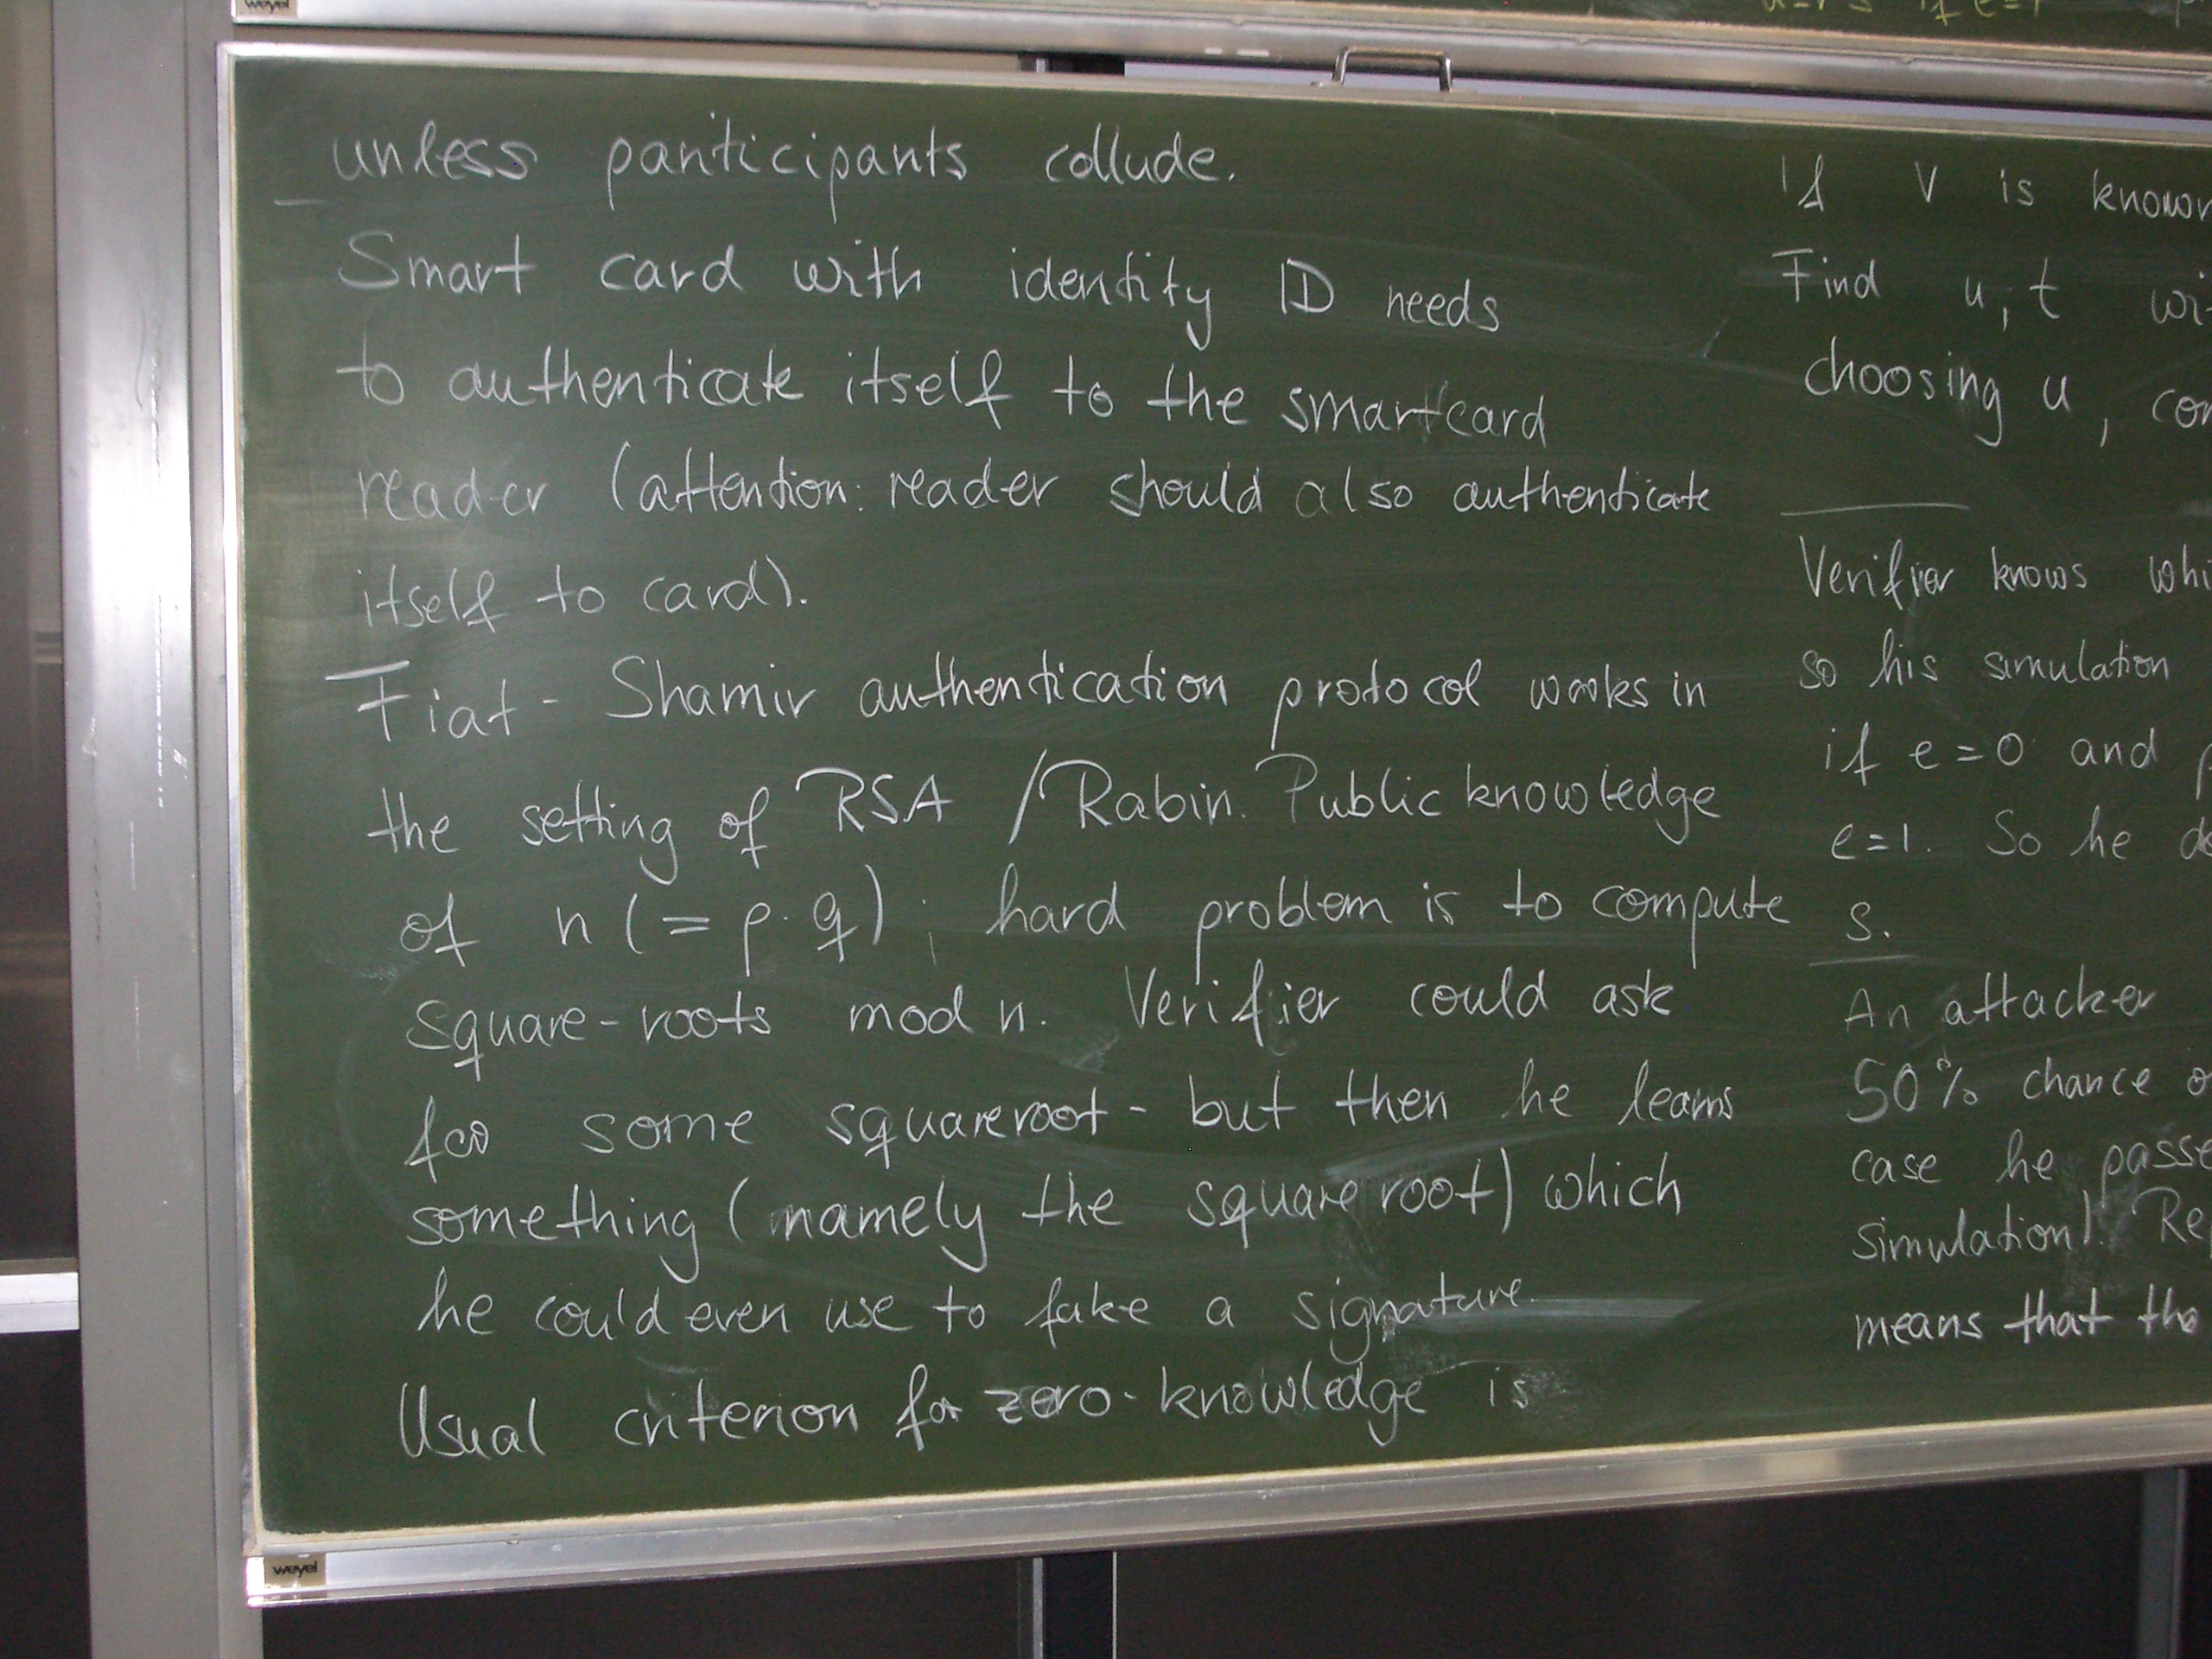 weyel
if e=1
unless participants collude.
Smart card with identity ID needs
to authenticate itself to the smartcard
reader (attention: reader should also authenticate
itself to card).
Fiat-Shamir authentication protocol works in
the setting of RSA / Rabin. Public knowledge
of n (= p·q); hard problem is to compute
square-roots mod n. Verifier could ask
for some squareroot - but then he learns
something (namely the square root) which
he could even use to fake a signature.
Usual criterion for zero-knowledge is
If V is known
Find u, t
choosing u,
Verifier knows
so his simulation
if e=0 and
e=1. So he
s.
An attacker
50% chance
case he
simulation). 
means that
weyel